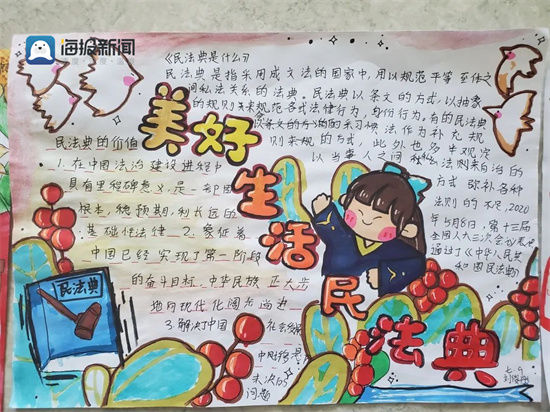 海报新闻
《民法典是什么》
民法典是指采用成文法的国家中,用以规范平等主体之
间私法关系的法典。民法典以条文的方式,以抽象
的规则来规范各式法律行为,身份行为,有的民法典
法作为补充规
则来规的方式,此外也多半观
以当事人之间
自治的
方式 弥补各种
法则的不足,2020
年5月8日,第十三届
全国人大三次会议表
通过了《中华人民共
和国民法
美好生活
民法典
民法典的价值
1.在中国法治建设进程中
具有里程碑意义,是一部固
根本,稳预期,利长远的
基础性法律 2.象征着
中国已经实现了第一阶段
的奋斗目标,中华民族正大步
地向现代化阔步迈进
3.解决了中国
问题
民法典
七.9